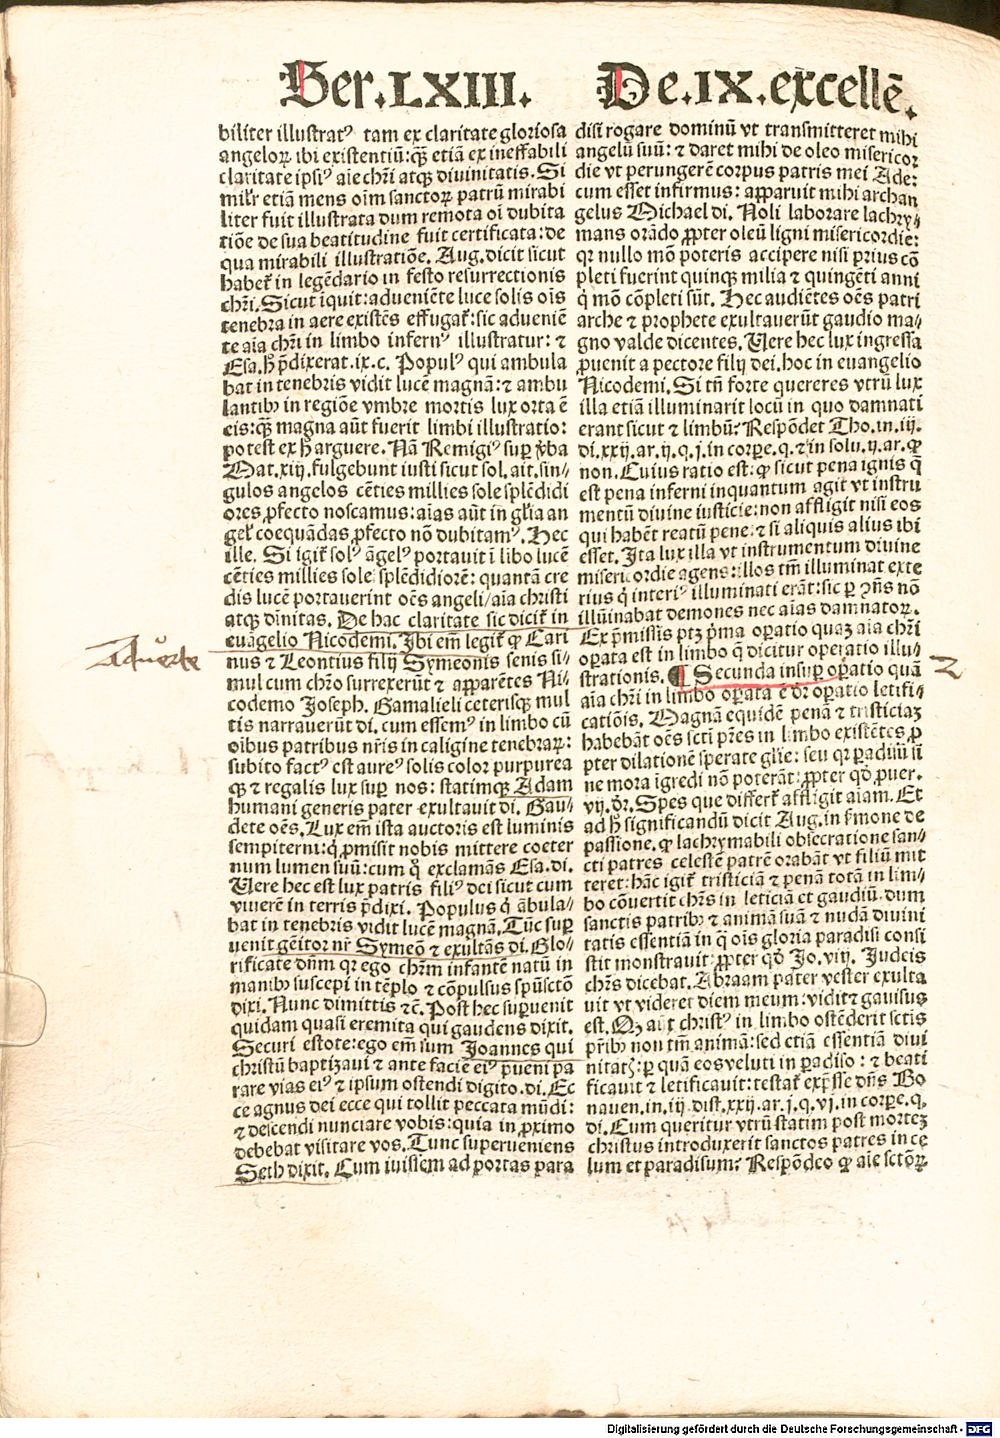 Ser.LXIII. De.IX.excellē.
biliter illustratꝰ tam ex claritate gloriosa
angeloꝝ ibi existentiū: qꝫ etiā ex ineffabili
claritate ipsiꝰ aīe chr̄i atqꝫ diuinitatis. Si
mil̄r etiā mens oīm sanctoꝝ patrū mirabi
liter fuit illustrata dum remota oī dubita
tiōe de sua beatitudine fuit certificata: de
qua mirabili illustratiōe. Aug. dicit sicut
habet̄ in legēdario in festo resurrectionis
chr̄i. Sicut īquit: adueniēte luce solis oīs
tenebra in aere existēs effugat̄: sic adueniē
te aīa chr̄i in limbo infernꝰ illustratur: ⁊
Esa. h̄ p̄dixerat. ix. c. Populꝰ qui ambula
bat in tenebris vidit lucē magnā: ⁊ ambu
lantibꝰ in regiōe vmbre mortis lux orta ē
eis: qꝫ magna aūt fuerit limbi illustratio:
potest ex h̄ arguere. Nā Remigiꝰ suꝑ v̄ba
Mat. xiij. fulgebunt iusti sicut sol. ait. sin⸗
gulos angelos cēties millies sole splēdidi
ores ꝓfecto noscamus: aīas aūt in gl̄ia an
gel̄ coequādas ꝓfecto nō dubitamꝰ. Hec
ille. Si igit̄ solꝰ āgelꝰ portauit ī libo lucē
cēties millies sole splēdidiorē: quantā cre
dis lucē portauerint oēs angeli/ aīa christi
atqꝫ dīnitas. De hac claritate sic dicit̄ in
euāgelio Nicodemi. Ibi em̄ legit̄ ꝙ Cari
nus ⁊ Leontius filij Symeonis senis si⸗
mul cum chr̄o surrexerūt ⁊ apparētes Ni⸗
codemo Joseph. Gamalieli ceterisqꝫ mul
tis narrauerūt di. cum essemꝰ in limbo cū
oībus patribus nr̄is in caligine tenebraꝝ:
subito factꝰ est aureꝰ solis color purpurea
qꝫ ⁊ regalis lux suꝑ nos: statimqꝫ Adam
humani generis pater exultauit di. Gau⸗
dete oēs. Lux em̄ ista auctoris est luminis
sempiterni: q̇ ꝓmisit nobis mittere coeter
num lumen suū: cum q̊ exclamās Esa. di.
Vere hec est lux patris filiꝰ dei sicut cum
viuerē in terris p̄dixi. Populus q̇ ābula⸗
bat in tenebris vidit lucē magnā. Tūc suꝑ
uenit gēitor nr̄ Symeō ⁊ exultās di. Glo⸗
rificate dn̄m qꝛ ego chr̄m infantē natū in
manibꝰ suscepi in tēplo ⁊ cōpulsus sp̄usctō
dixi. Nunc dimittis ⁊c̄. Post hec suꝑuenit
quidam quasi eremita qui gaudens dixit.
Securi estote: ego em̄ sum Joannes qui
christū baptizaui ⁊ ante faciē eiꝰ p̄ueni pa
rare vias eiꝰ ⁊ ipsum ostendi digito. di. Ec
ce agnus dei ecce qui tollit peccata mūdi:
⁊ descendi nunciare vobis: quia in ꝓximo
debebat visitare vos. Tunc superueniens
Seth dixit. Cum iuissem ad portas para
disi rogare dominū vt transmitteret mihi
angelū suū: ⁊ daret mihi de oleo misericor
die vt perungerē corpus patris mei Ade:
cum esset infirmus: apparuit mihi archan
gelus Michael di. Noli laborare lachry⸗
mans orādo ꝓpter oleū ligni misericordie:
qꝛ nullo mō poteris accipere nisi prius cō
pleti fuerint quinqꝫ milia ⁊ quingēti anni
q̇ mō cōpleti sūt. Hec audiētes oēs patri
arche ⁊ prophete exultauerūt gaudio ma⸗
gno valde dicentes. Vere hec lux ingressa
ꝓuenit a pectore filij dei. hoc in euangelio
Nicodemi. Si tn̄ forte quereres vtrū lux
illa etiā illuminarit locū in quo damnati
erant sicut ⁊ limbū? Respōdet Tho. in. iij.
di. xxij. ar. ij. q. j. in corꝑe. q. ⁊ in solu. ij. ar. ꝙ
non. Cuius ratio est: ꝙ sicut pena ignis q̄
est pena inferni inquantum agit vt instru
mentū diuine iusticie: non affligit nisi eos
qui habēt reatū pene. ⁊ si aliquis alius ibi
esset. Ita lux illa vt instrumentum diuine
misericordie agens: illos tm̄ illuminat exte
rius q̇ interiꝰ illuminati erāt: sic ꝑ ꝯn̄s nō
illūinabat demones nec aīas damnatoꝝ.
Ex p̄missis ptꝫ p̄ma oꝑatio quaꝫ aīa chr̄i
oꝑata est in limbo q̄ dicitur operatio illu⸗
strationis. ¶ Secunda insuꝑ oꝑatio quā
aīa chr̄i in limbo oꝑata ē dr̄ oꝑatio letifi⸗
catiōis. Magnā equidē penā ⁊ tristiciaꝫ
habebāt oēs scti pr̄es in limbo existētes ꝓ
pter dilationē sperate gl̄ie: seu qꝛ paradisū si
ne mora īgredi nō poterāt: ꝓpter qd̄ ꝓuer.
vij. dr̄. Spes que differt̄ affligit aīam. Et
ad h̄ significandū dicit Aug. in s̄mone de
passione. ꝙ lachrymabili obsecratione san⸗
cti patres celestē patrē orabāt vt filiū mit
teret: hāc igit̄ tristiciā ⁊ penā totā in lim⸗
bo cōuertit chr̄s in leticiā et gaudiū. dum
sanctis patribꝰ ⁊ animā suā ⁊ nudā diuini
tatis essentiā in q̄ oīs gloria paradisi consi
stit monstrauit: ꝓpter qd̄ Jo. viij. Judeis
chr̄s dicebat. Abraam pater vester exulta
uit vt videret diem meum: vidit ⁊ gauisus
est. Qꝫ aūt christꝰ in limbo ostēderit sctis
pr̄ibꝰ non tm̄ animā: sed etiā essentiā diui
nitatꝭ: ꝑ quā eos veluti in ꝑadiso: ⁊ beati
ficauit ⁊ letificauit: testat̄ exp̄sse dn̄s Bo
nauen. in. iij. dist. xxij. ar. j. q. vj. in corꝑe. q.
di. Cum queritur vtrū statim post morteꝫ
christus introduxerit sanctos patres in cę
lum et paradisum? Respōdeo ꝙ aīe sctōꝝ
Aduerte
2
Digitalisierung gefördert durch die Deutsche Forschungsgemeinschaft - DFG